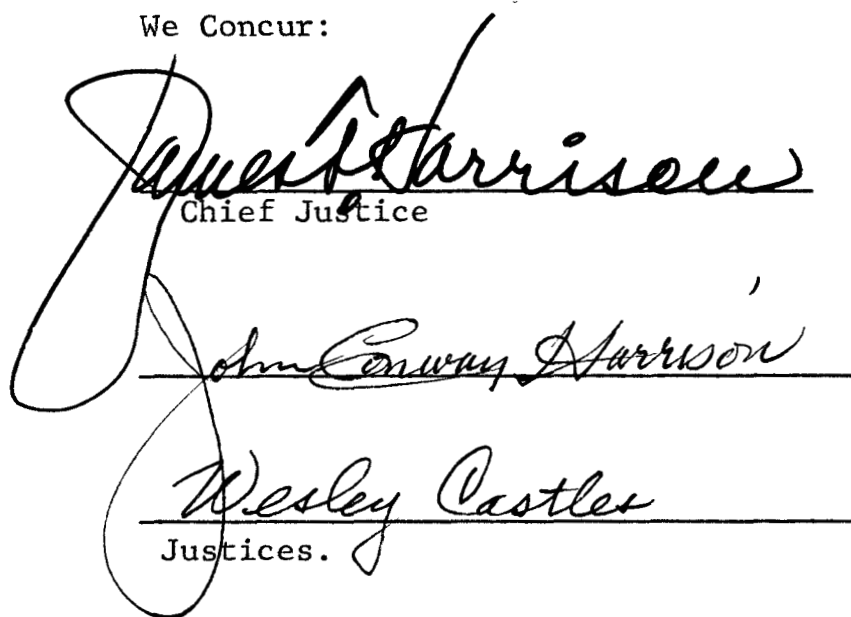 We Concur:
James T. Harrison
Chief Justice
John Conway Harrison
Wesley Castles
Justices.